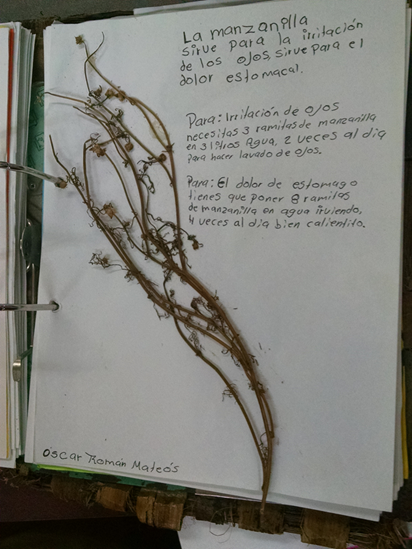 La manzanilla
sirve para la irritación
de los ojos, sirve para el
dolor estomacal.
Para: Irritación de ojos
necesitas 3 ramitas de manzanilla
en 3 litros Agua, 2 veces al dia
para hacer lavado de ojos.
Para: El dolor de estomago
tienes que poner 8 ramitas
de manzanilla en agua irviendo,
4 veces al dia bien calientito.
Oscar Román Mateós